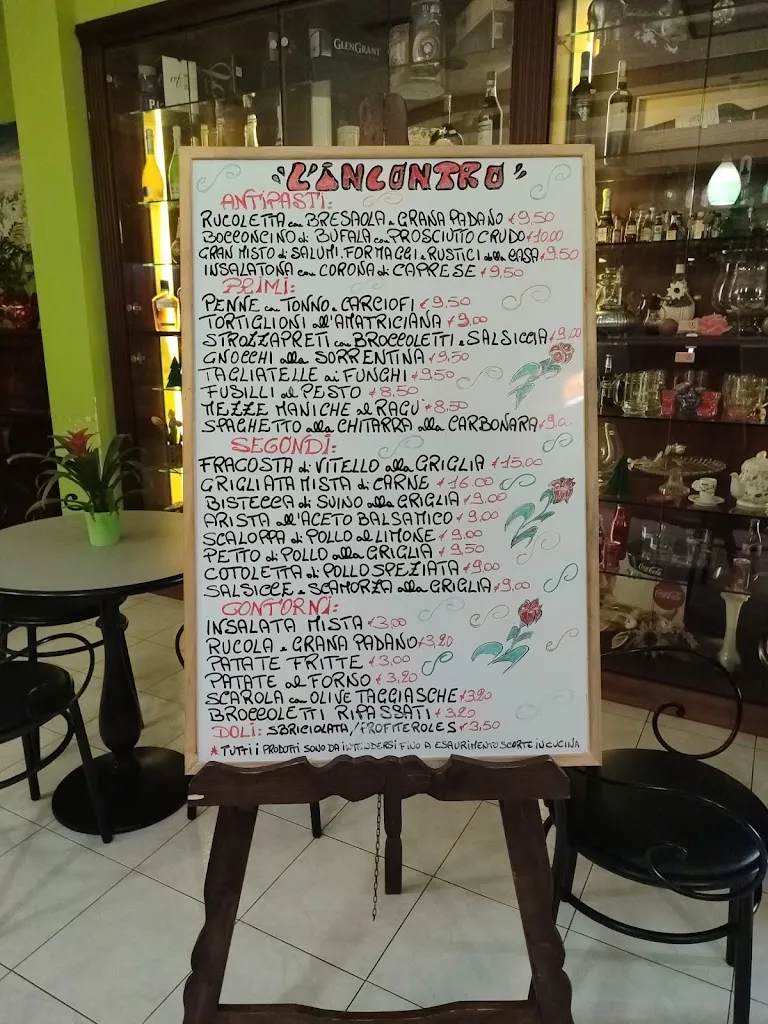 GLENGRANT
"L'INCONTRO"
ANTIPASTI:
RUCOLETTA con BRESAOLA e GRANA PADANO €9,50
BOCCONCINO di BUFALA con PROSCIUTTO CRUDO €10,00
GRAN MISTO di SALUMI, FORMAGGI e RUSTICI della CASA €9.50
INSALATONA con CORONA di CAPRESE €9,50
PRIMI:
PENNE con TONNO e CARCIOFI €9,50
TORTIGLIONI all'AMATRICIANA €9,00
STROZZAPRETI con BROCCOLETTI e SALSICCIA €9,00
GNOCCHI alla SORRENTINA €9,50
TAGLIATELLE ai FUNGHI €9,50
FUSILLI al PESTO €8,50
MEZZE MANICHE al RAGU' €8,50
SPAGHETTO alla CHITARRA alla CARBONARA €9,0
SEGONDI:
FRACOSTA di VITELLO alla GRIGLIA €15,00
GRIGLIATA MISTA di CARNE €16,00
BISTECCA di SUINO alla GRIGLIA €9,00
ARISTA all'ACETO BALSAMICO €9,00
SCALOPPA di POLLO al LIMONE €9,00
PETTO di POLLO alla GRIGLIA €9,50
COTOLETTA di POLLO SPEZIATA €9,00
SALSICCE e SCAMORZA alla GRIGLIA €9,00
CONTORNI:
INSALATA MISTA €3,00
RUCOLA e GRANA PADANO €3,20
PATATE FRITTE €3,00
PATATE al FORNO €3,20
SCAROLA con OLIVE TAGGIASCHE €3,20
BROCCOLETTI RIPASSATI €3,20
DOLI: SBRICIOLATA/PROFITEROLES €3,50
* TUTTI i PRODOTTI SONO DA INTENDERSI FINO A ESAURIMENTO SCORTE IN CUCINA
Coca-Cola